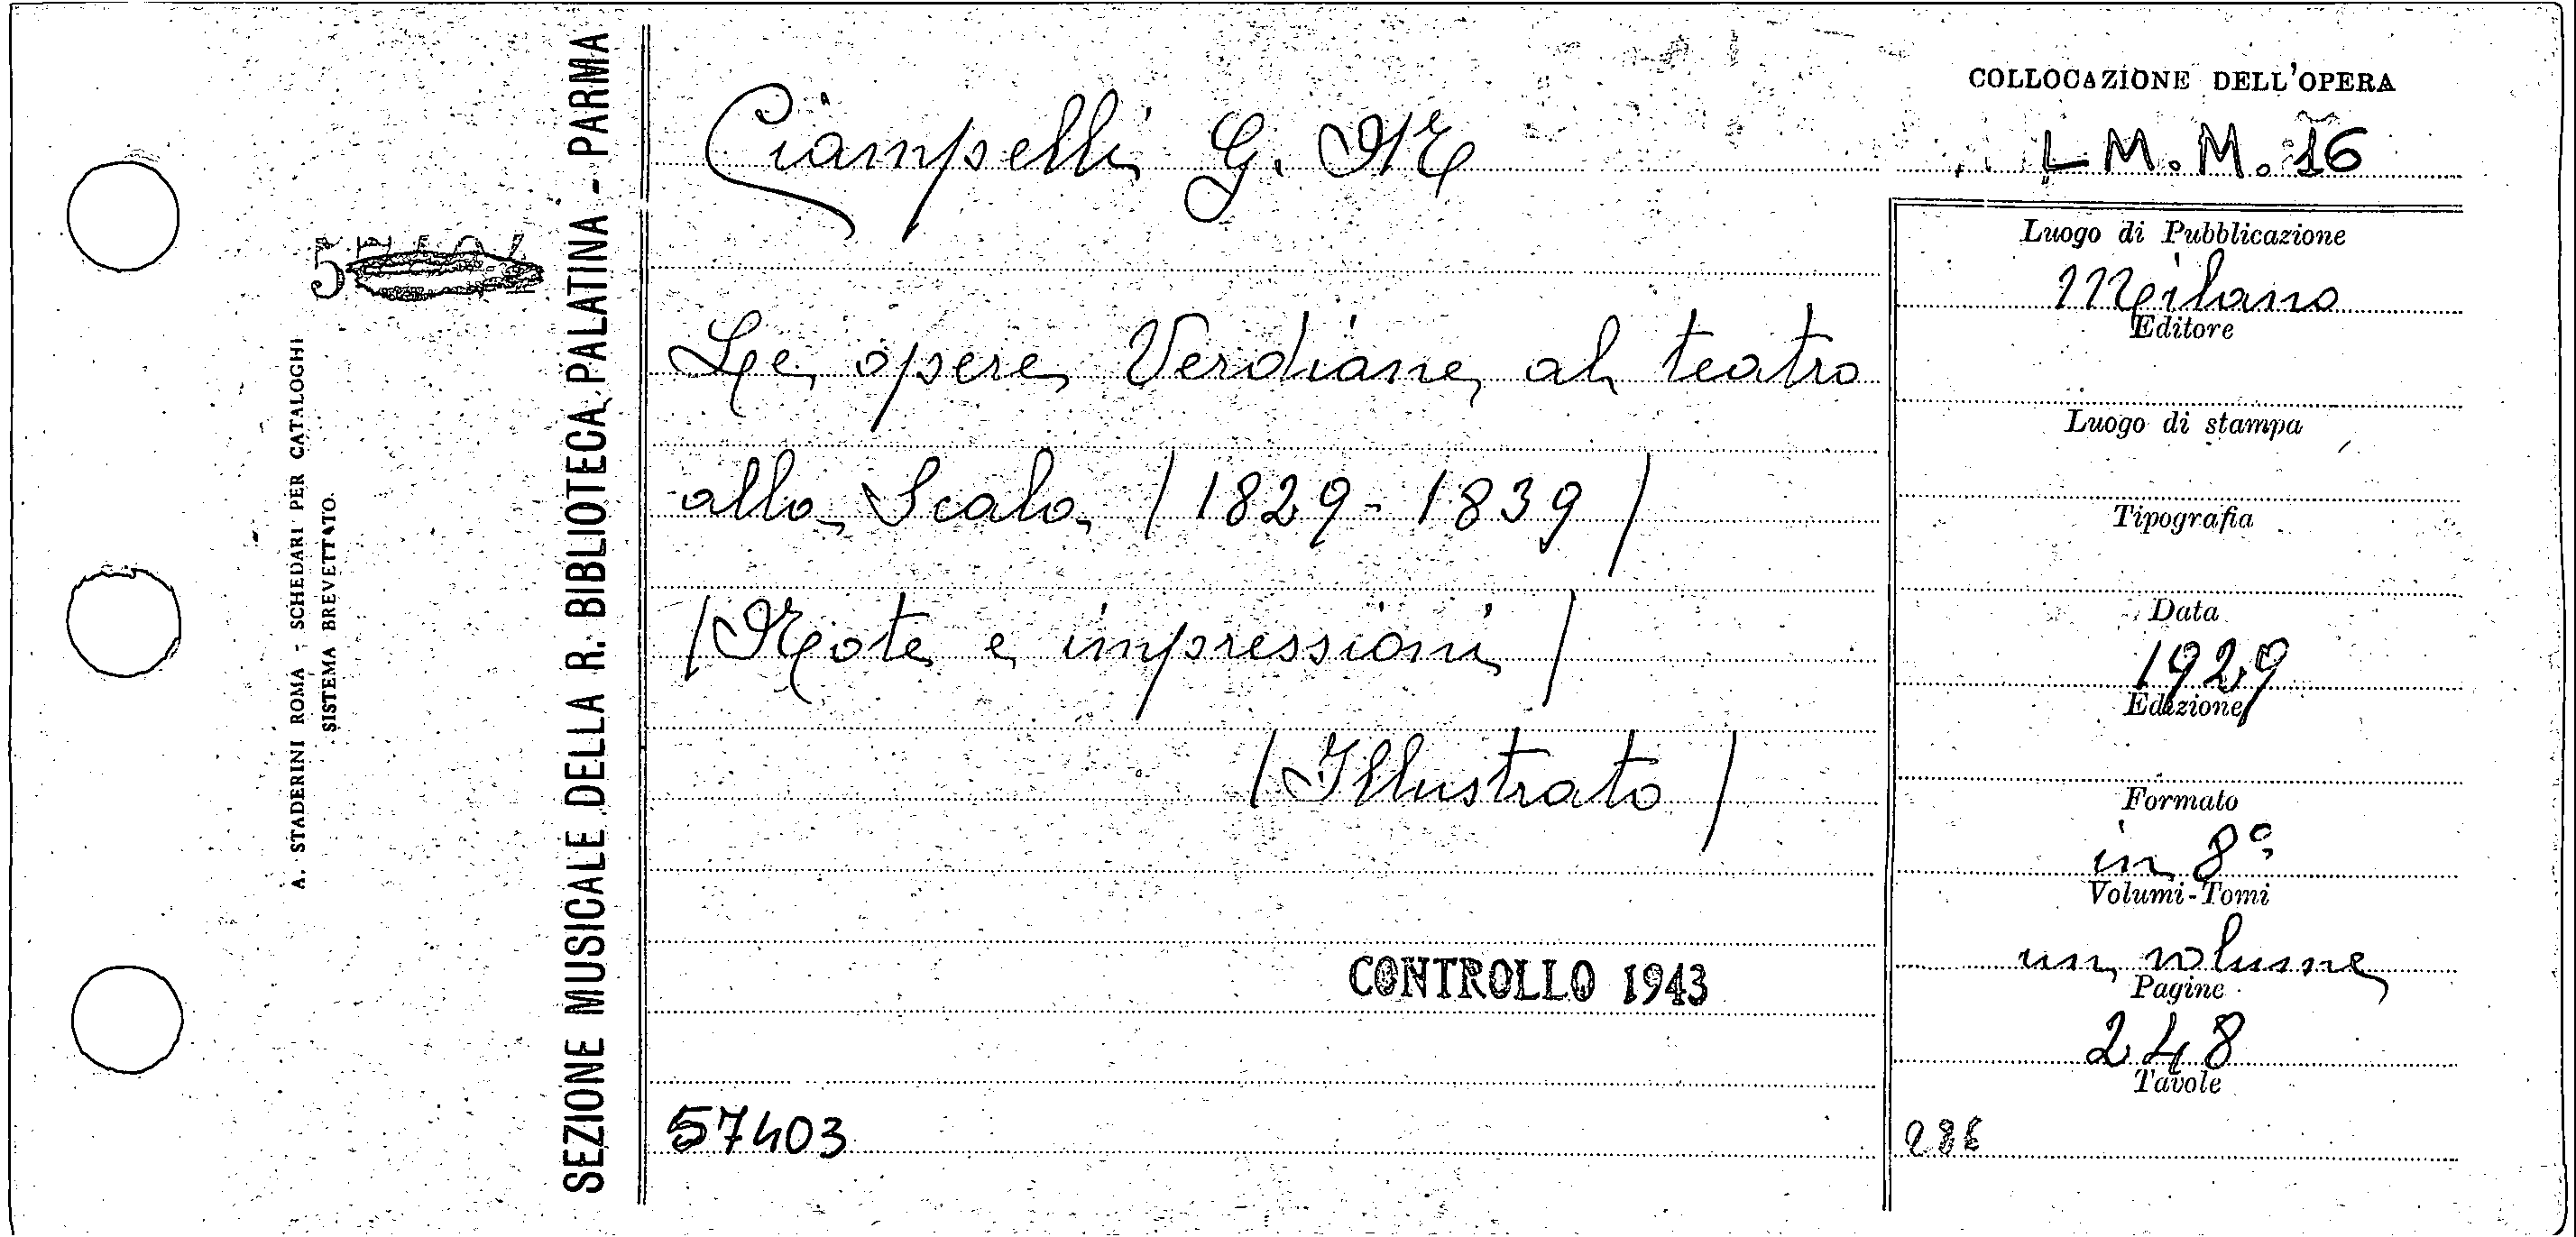 COLLOCAZIONE DELL'OPERA
Ciampelli G. M
L M. M. 16
Le opere Verdiane al teatro
alla Scala / 1829 - 1839 /
/ Note e impressioni /
/ Illustrato /
CONTROLLO 1943
57403
Luogo di Pubblicazione
Milano
Editore
Luogo di stampa
Tipografia
Data
1929
Edizione
Formato
in 8º
Volumi-Tomi
un volume
Pagine
248
Tavole
286
SEZIONE MUSICALE DELLA R. BIBLIOTECA PALATINA - PARMA
A. STADERINI ROMA - SCHEDARI PER CATALOGHI
SISTEMA BREVETTATO.